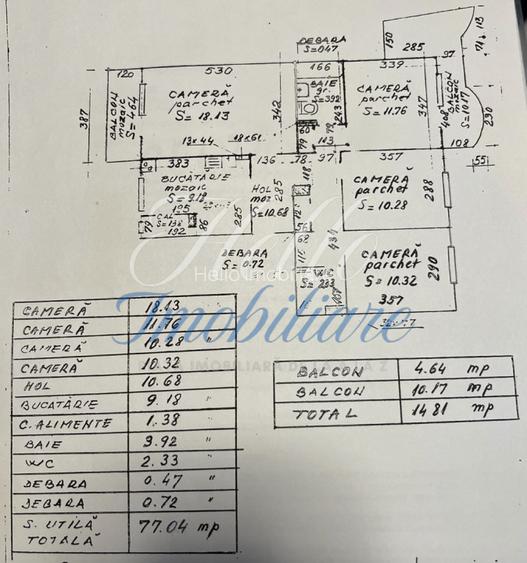 DEBARA
S=0.47
150
285
113
71
97
120
530
166
339
BALCON
mozaic
S=4.64
387
CAMERĂ
parchet
S=18.13
342
BAIE
gr.
S=3.92
243
CAMERĂ
parchet
S=11.76
347
408
BALCON
mozaic
S=10.17
290
60
79
79
113
13x44
18x61
108
383
136
78
97
357
55
BUCĂTĂRIE
mozaic
S=9.18
HOL
moz
S=10.68
285
118
CAMERĂ
parchet
S=10.28
288
195
C.AL
S=1.38
79
192
86
285
56
68
434
DEBARA
S=0.72
115
WC
S=2.33
CAMERĂ
parchet
S=10.32
357
290
Hello
Hello Imobiliare
Imobiliare
CAMERĂ 18.13
CAMERĂ 11.76 "
CAMERĂ 10.28 "
CAMERĂ 10.32
HOL 10.68
BUCATĂRIE 9.18 "
C. ALIMENTE 1.38 "
BAIE 3.92 "
WC 2.33 "
DEBARA 0.47 "
DEBARA 0.72 "
S. UTILĂ
TOTALĂ 77.04 mp
BALCON 4.64 mp
BALCON 10.17 mp
TOTAL 14.81 mp